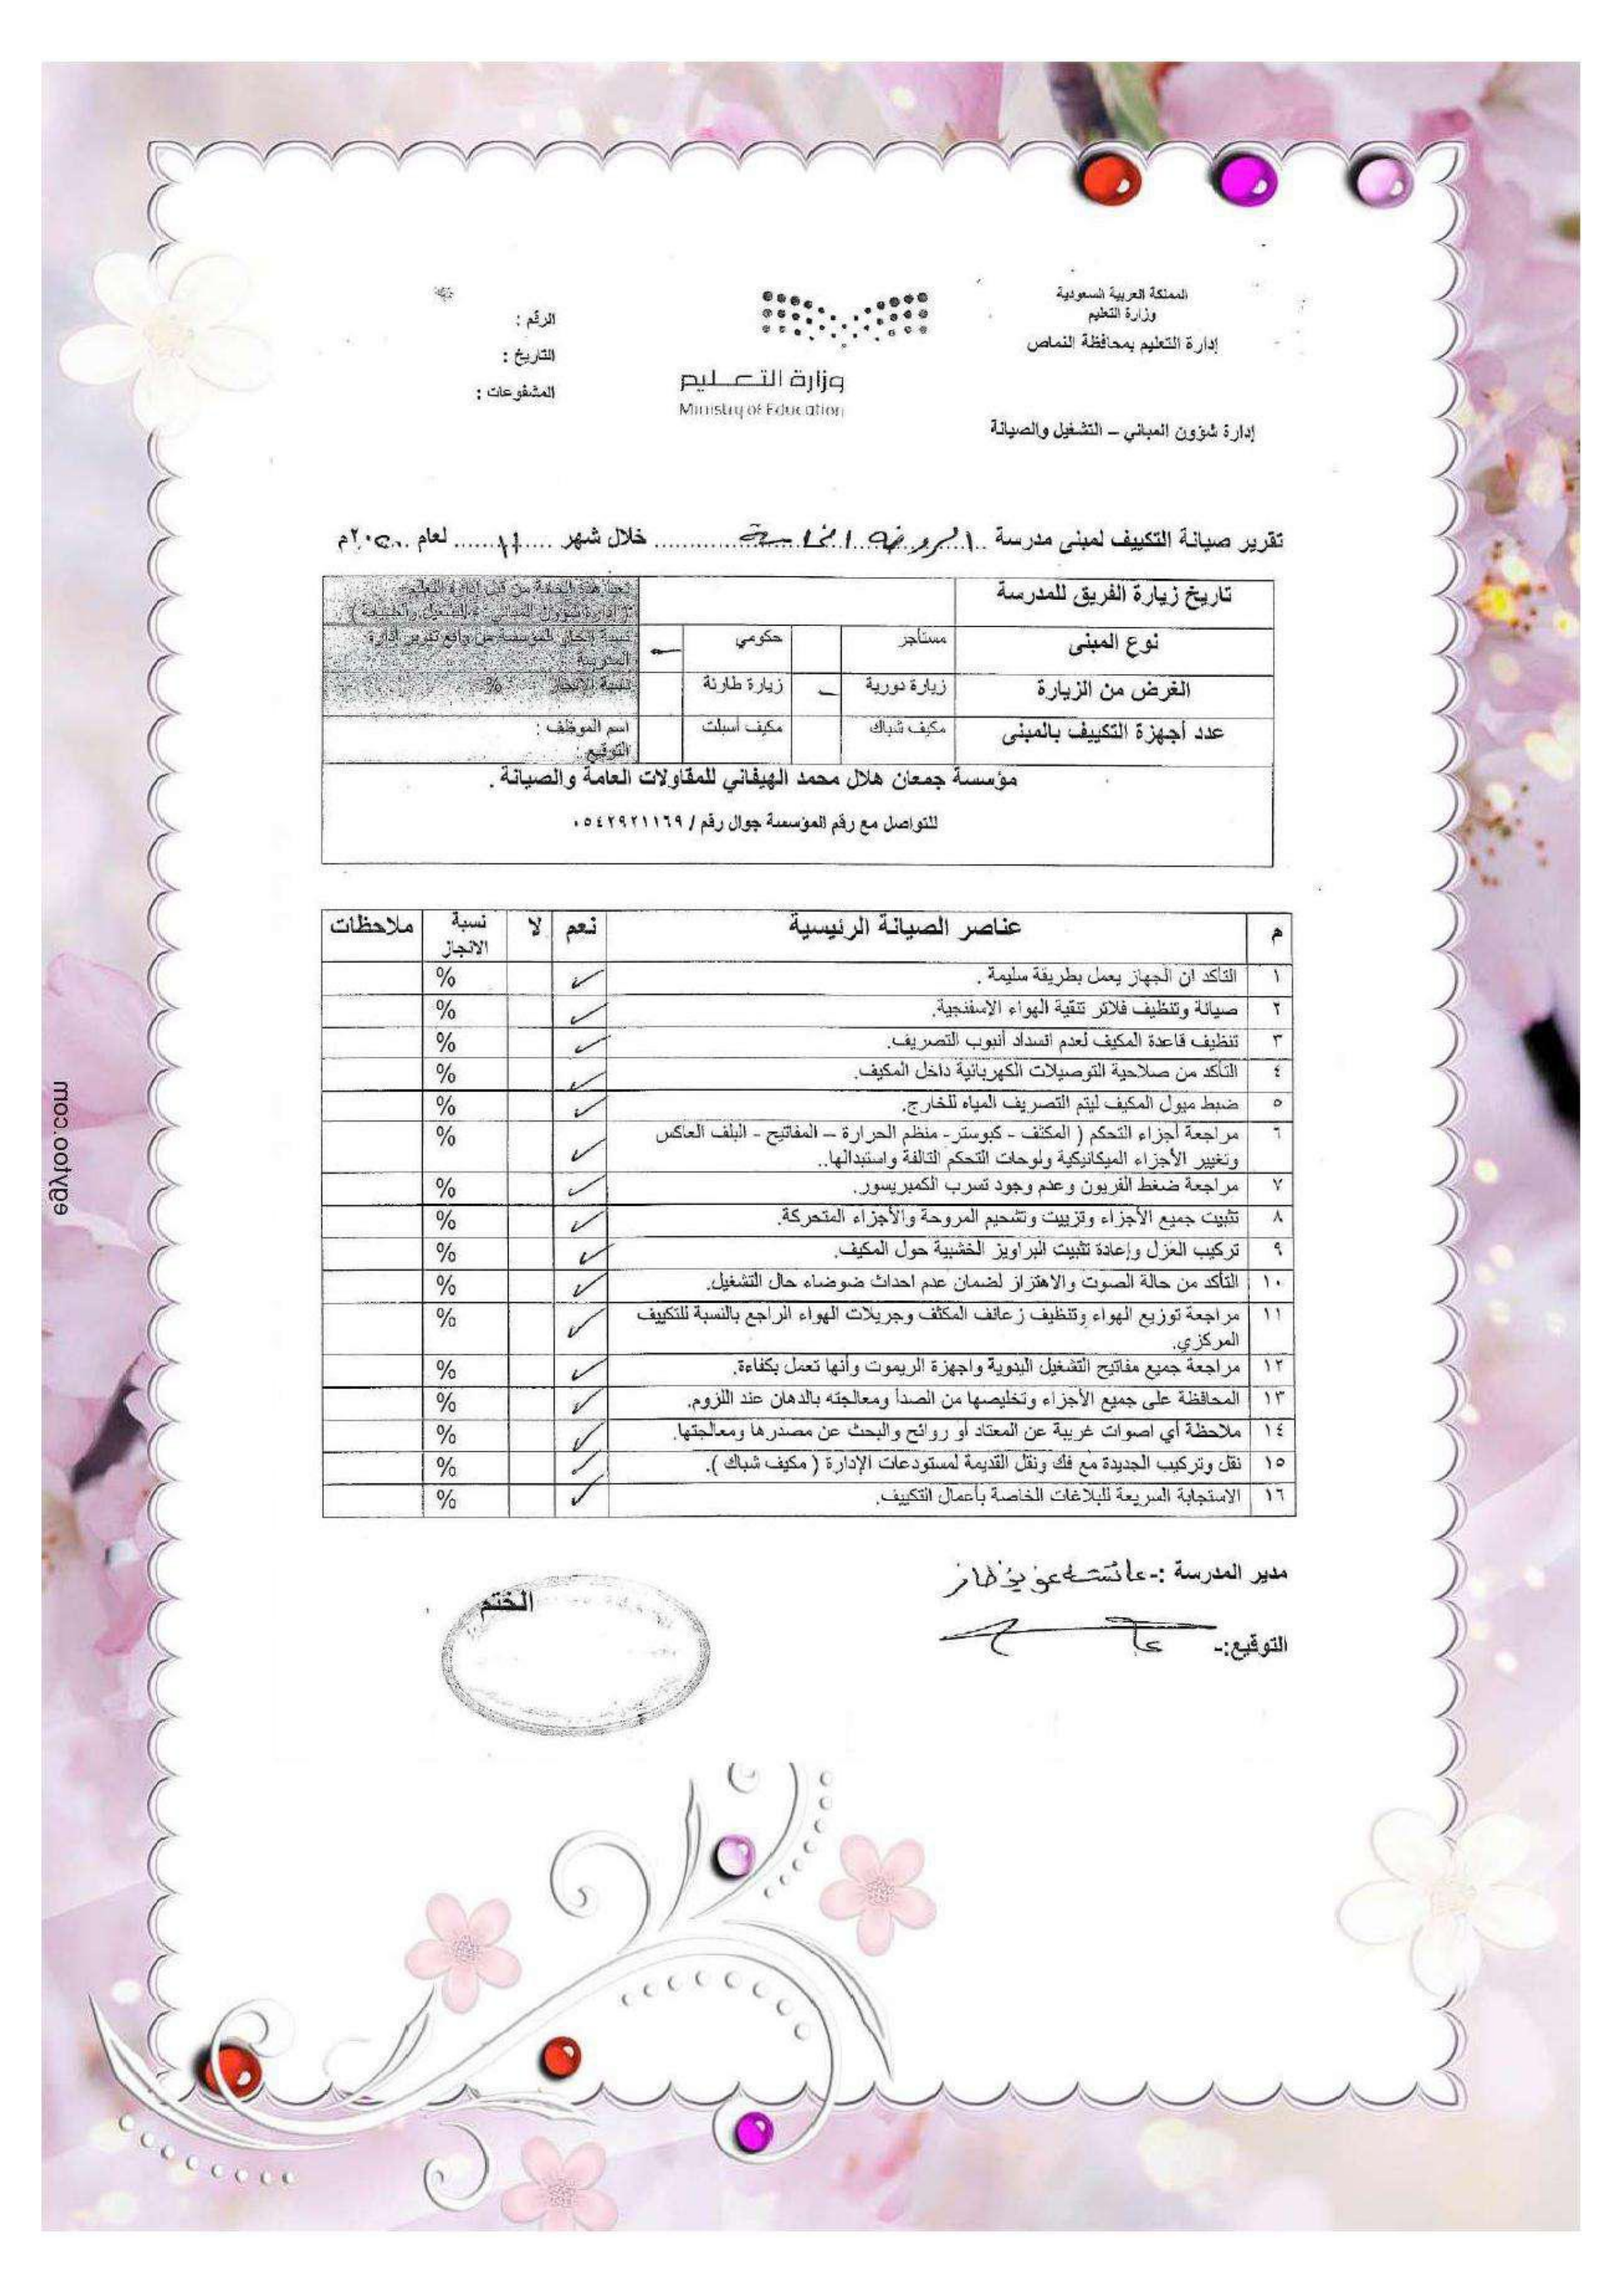 المملكة العربية السعودية
وزارة التعليم
إدارة التعليم بمحافظة النماص
إدارة شؤون المباني – التشغيل والصيانة
وزارة التعليم
Ministry of Education
الرقم :
التاريخ :
المشفوعات :
تقرير صيانة التكييف لمبنى مدرسة الروضه الخامسة خلال شهر ١١ لعام ٢٠م
تاريخ زيارة الفريق للمدرسة
نوع المبنى مستأجر حكومي
الغرض من الزيارة زيارة دورية زيارة طارئة نسبة الانجاز %
عدد أجهزة التكييف بالمبنى مكيف شباك مكيف أسبلت اسم الموظف :
التوقيع :
مؤسسة جمعان هلال محمد الهيفاني للمقاولات العامة والصيانة .
للتواصل مع رقم المؤسسة جوال رقم / ٠٥٤٢٩٢١١٦٩
م عناصر الصيانة الرئيسية نعم لا نسبة الانجاز ملاحظات
١ التأكد ان الجهاز يعمل بطريقة سليمة . ✓ %
٢ صيانة وتنظيف فلاتر تنقية الهواء الاسفنجية. ✓ %
٣ تنظيف قاعدة المكيف لعدم انسداد أنبوب التصريف. ✓ %
٤ التأكد من صلاحية التوصيلات الكهربائية داخل المكيف. ✓ %
٥ ضبط ميول المكيف ليتم التصريف المياه للخارج. ✓ %
٦ مراجعة أجزاء التحكم ( المكثف - كبوستر- منظم الحرارة – المفاتيح - البلف العاكس ✓ %
وتغيير الأجزاء الميكانيكية ولوحات التحكم التالفة واستبدالها..
٧ مراجعة ضغط الفريون وعدم وجود تسرب الكمبريسور. ✓ %
٨ تثبيت جميع الأجزاء وتزييت وتشحيم المروحة والأجزاء المتحركة. ✓ %
٩ تركيب العزل وإعادة تثبيت البراويز الخشبية حول المكيف. ✓ %
١٠ التأكد من حالة الصوت والاهتزاز لضمان عدم احداث ضوضاء حال التشغيل. ✓ %
١١ مراجعة توزيع الهواء وتنظيف زعانف المكثف وجريلات الهواء الراجع بالنسبة للتكييف ✓ %
المركزي.
١٢ مراجعة جميع مفاتيح التشغيل اليدوية واجهزة الريموت وأنها تعمل بكفاءة. ✓ %
١٣ المحافظة على جميع الأجزاء وتخليصها من الصدأ ومعالجته بالدهان عند اللزوم. ✓ %
١٤ ملاحظة أي اصوات غريبة عن المعتاد أو روائح والبحث عن مصدرها ومعالجتها. ✓ %
١٥ نقل وتركيب الجديدة مع فك ونقل القديمة لمستودعات الإدارة ( مكيف شباك ). ✓ %
١٦ الاستجابة السريعة للبلاغات الخاصة بأعمال التكييف. ✓ %
مدير المدرسة :- عائشة
التوقيع:-
الختم
egytoo.com